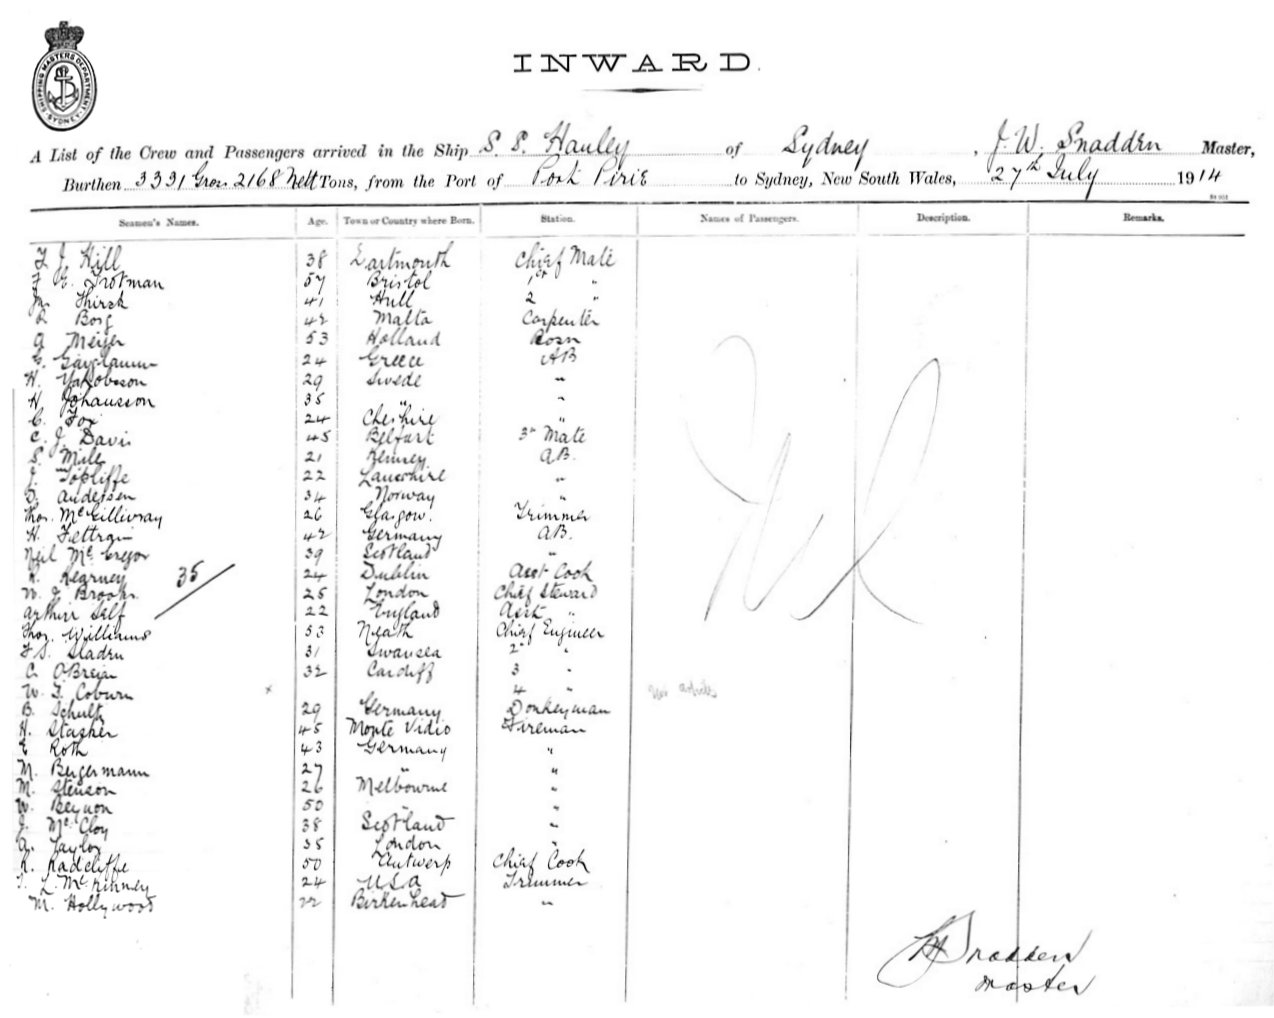 SHIPPING MASTERS DEPARTMENT
SYDNEY
INWARD.
A List of the Crew and Passengers arrived in the Ship S. S. Hanley of Sydney, J. W. Snadden Master,
Burthen 3331 Gros 2168 Nett Tons, from the Port of Port Pirie to Sydney, New South Wales, 27th July 1914
Seamen's Names. Age. Town or Country where Born. Station. Names of Passengers. Description. Remarks.
F J. Hill 38 Dartmouth Chief Mate
F G. Trotman 57 Bristol 1st "
Thirsk 41 Hull 2 "
Borg 42 Malta Carpenter
Meijer 53 Holland Bosn
24 Greece AB
H. Yakobsson 29 Swede "
H Johansson 35 " "
C. Fox 24 Cheshire "
C. J. Davis 45 Belfast 3rd Mate
S. Mills 21 AB.
J. Topliffe 22 Lancshire "
D. Andersen 34 Norway "
Thos. McGillivray 26 Glasgow. Trimmer
H. 42 Germany AB.
Neil McGregor 39 Scotland "
K. Kearney 24 Dublin Asst Cook
35
W. J. Brooks 25 London Chief Steward
Arthur Self 22 England Asst "
Thos. Williams 53 Neath Chief Engineer
F S. Sladen 31 Swansea 2nd "
C. O'Breian 32 Cardiff 3 "
W. F. Coburn x 4 "
B. Schultz 29 Germany Donkeyman
H. Stasker 45 Monte Vidio Fireman
E Roth 43 Germany "
M. Bergermann 27 " "
M. Stenson 26 Melbourne "
W. Beynon 50 " "
J. McCloy 38 Scotland "
A. Taylor 35 London "
K. Radcliffe 50 Antwerp Chief Cook
L. McKinney 24 USA Trimmer
M. Hollywood 22 Birkenhead "
Nil
Snadden
Master